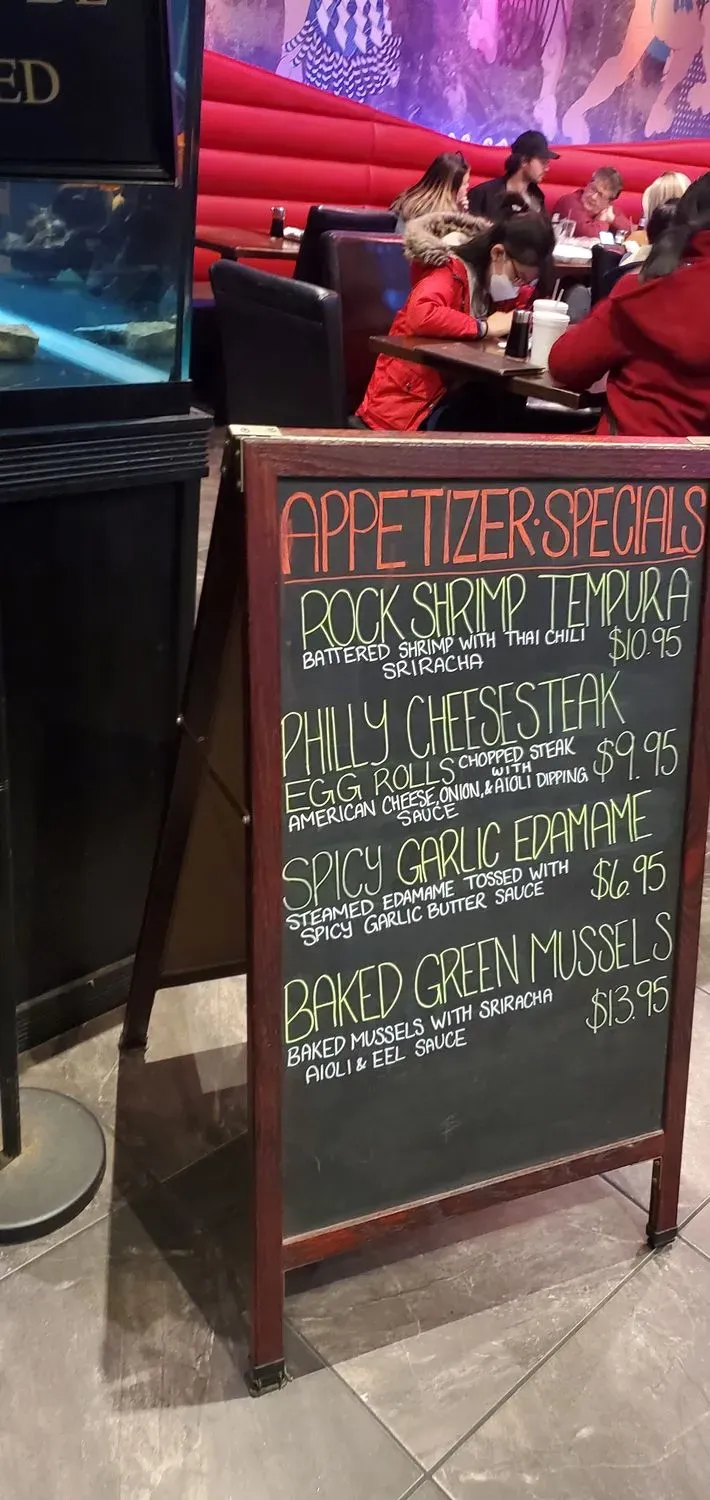 ED
APPETIZER·SPECIALS
ROCK SHRIMP TEMPURA
BATTERED SHRIMP WITH THAI CHILI $10.95
SRIRACHA
PHILLY CHEESESTEAK
EGG ROLLS CHOPPED STEAK $9.95
WITH
AMERICAN CHEESE, ONION, & AIOLI DIPPING
SAUCE
SPICY GARLIC EDAMAME
STEAMED EDAMAME TOSSED WITH $6.95
SPICY GARLIC BUTTER SAUCE
BAKED GREEN MUSSELS
BAKED MUSSELS WITH SRIRACHA $13.95
AIOLI & EEL SAUCE